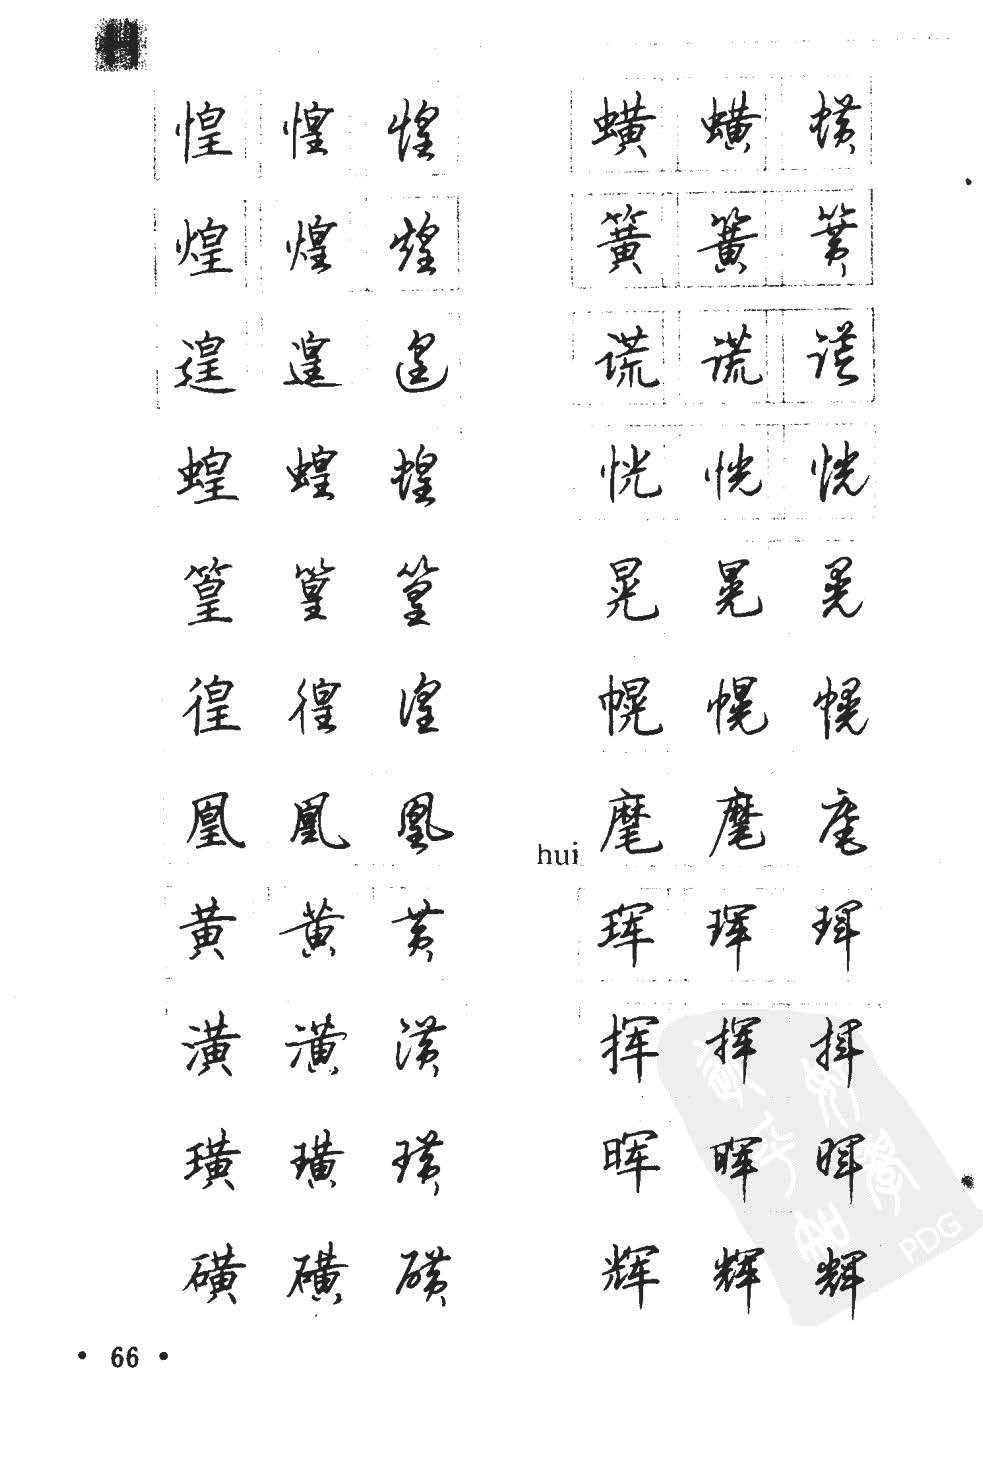 H
惶 惶 惶
煌 煌 煌
遑 遑 遑
蝗 蝗 蝗
篁 篁 篁
徨 徨 徨
凰 凰 凰
黄 黄 黄
潢 潢 潢
璜 璜 璜
磺 磺 磺
蟥 蟥 蟥
簧 簧 簧
谎 谎 谎
恍 恍 恍
晃 晃 晃
幌 幌 幌
hui 麾 麾 麾
珲 珲 珲
挥 挥 挥
晖 晖 晖
辉 辉 辉
PDG
• 66 •